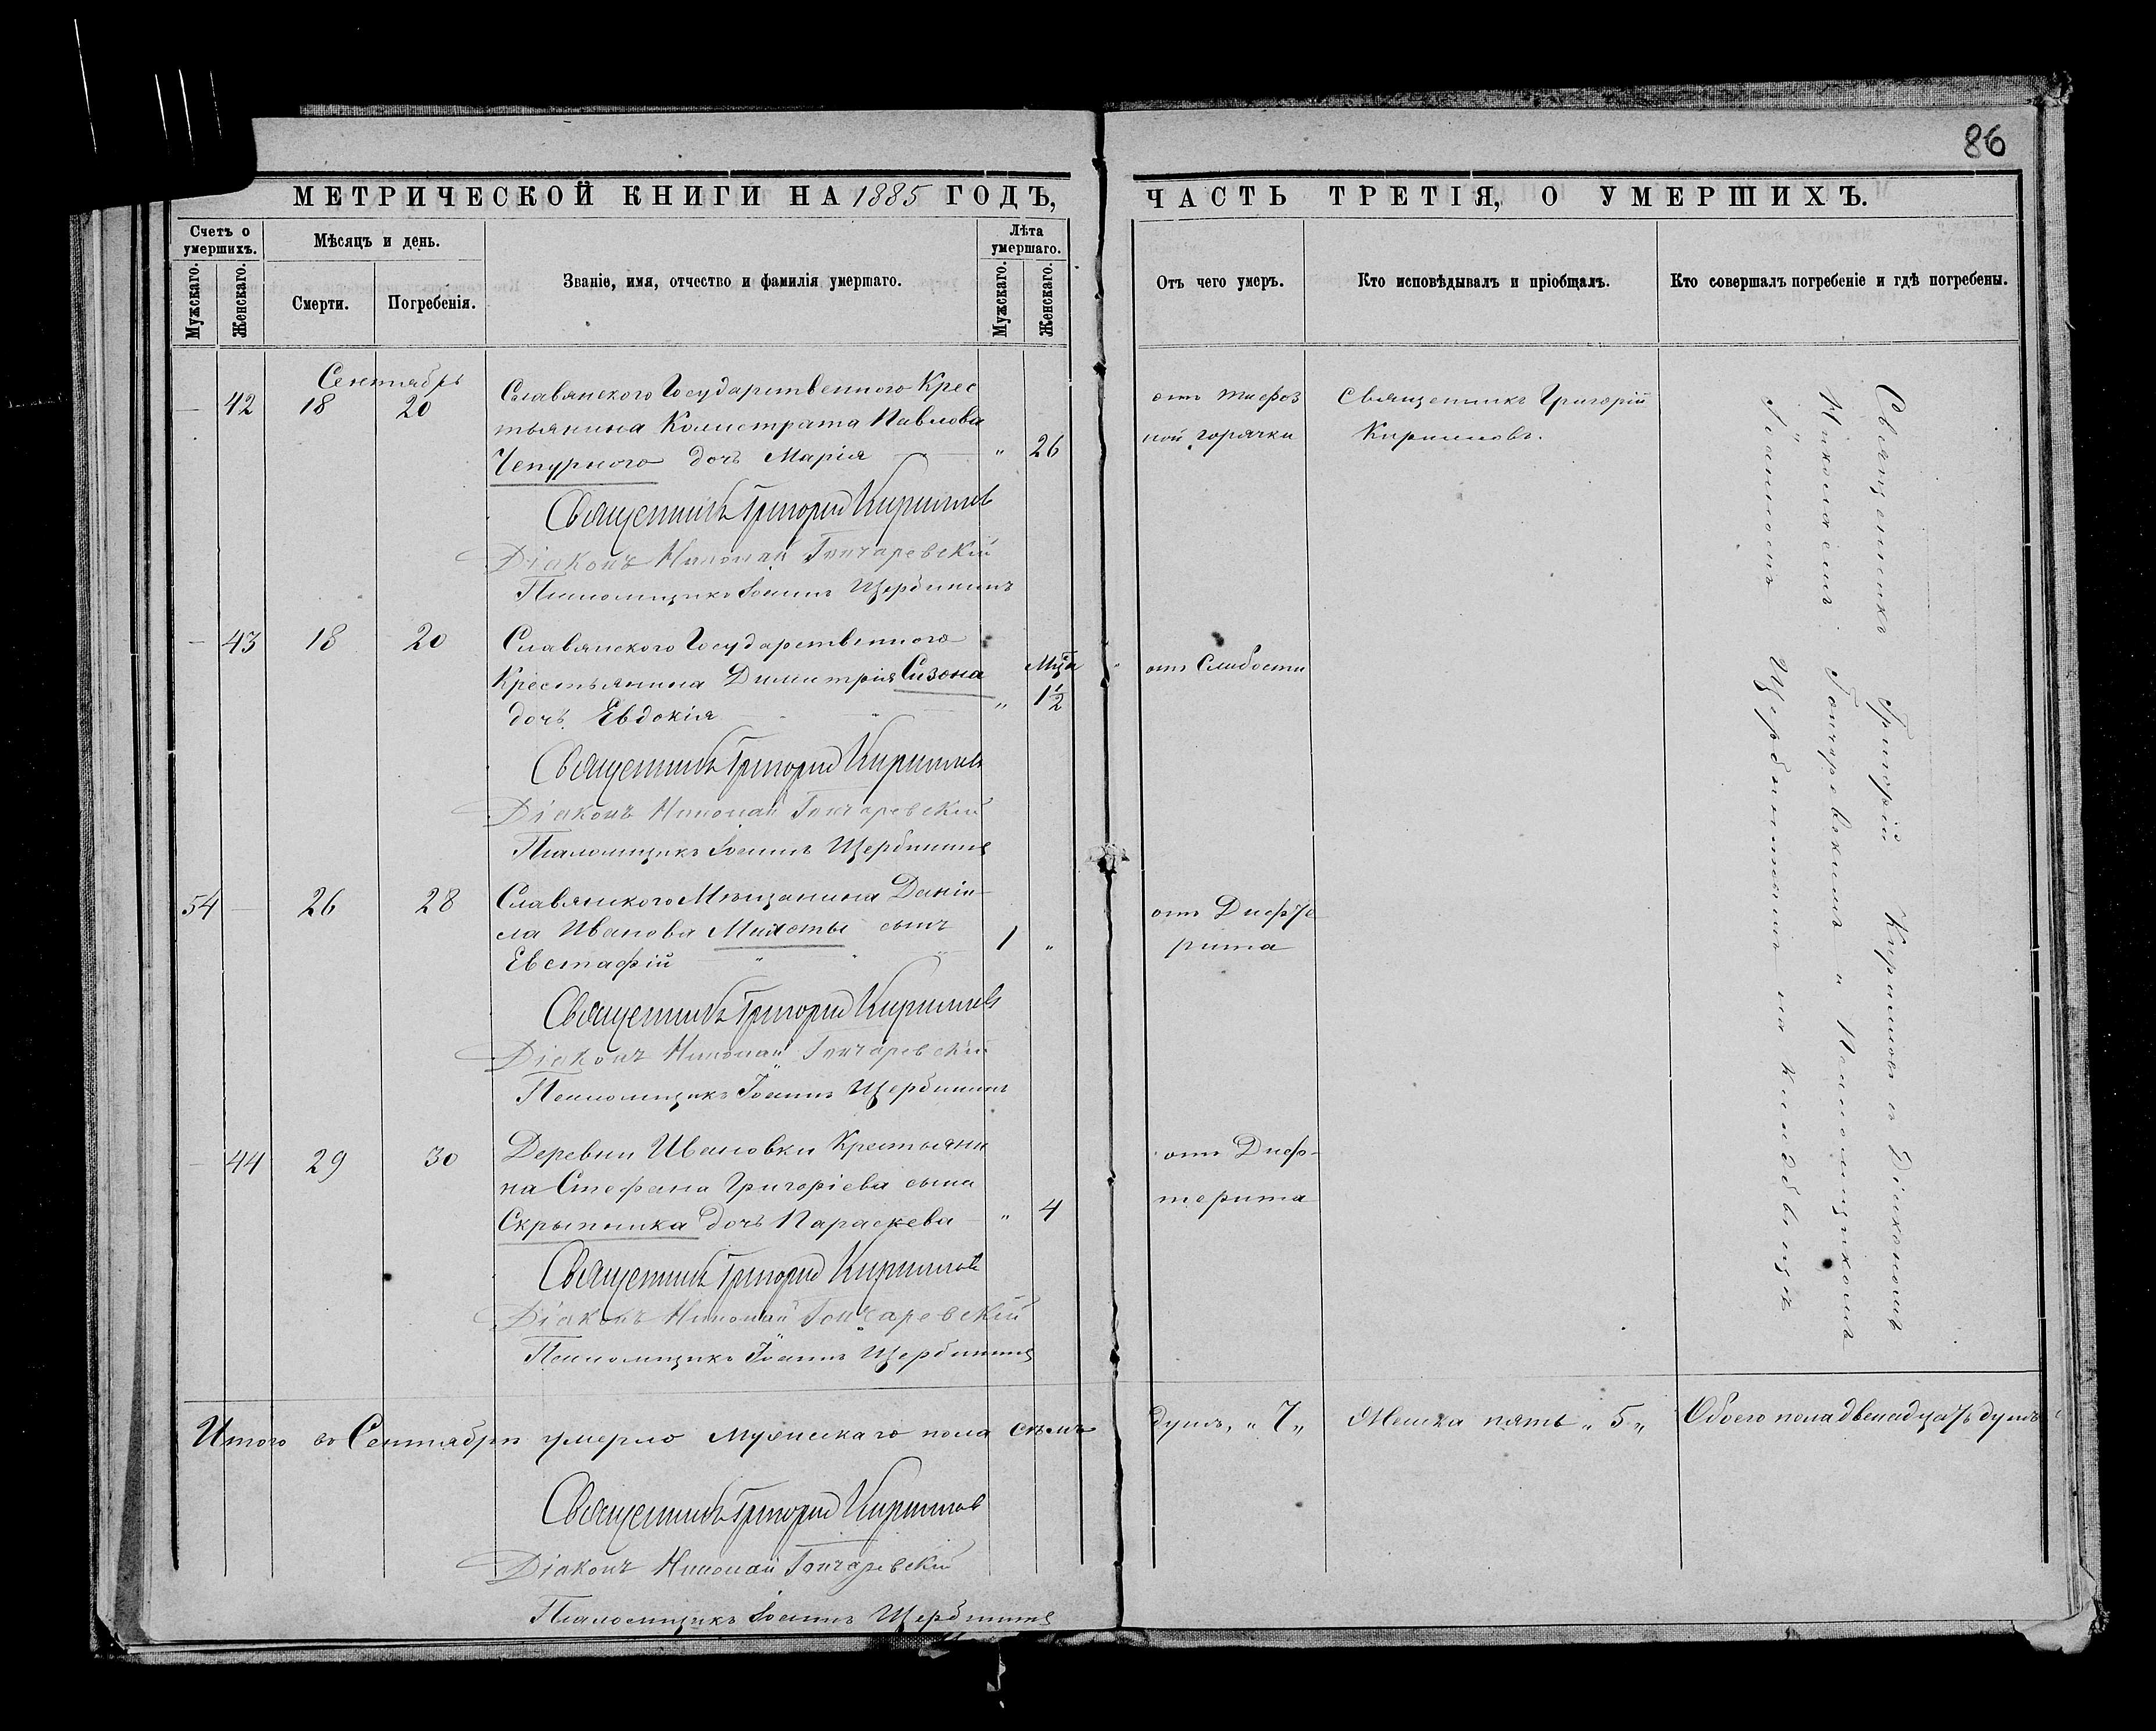 86
МЕТРИЧЕСКОЙ КНИГИ НА 1885 ГОДЪ,
ЧАСТЬ ТРЕТІЯ, О УМЕРШИХЪ.
Счетъ о умершихъ.
Мужскаго.
Женскаго.
Мѣсяцъ и день.
Смерти.
Погребенія.
Званіе, имя, отчество и фамилія умершаго.
Лѣта умершаго.
Мужскаго.
Женскаго.
Отъ чего умеръ.
Кто исповѣдывалъ и пріобщалъ.
Кто совершалъ погребеніе и гдѣ погребены.
Сентябрь
— 42 18 20
Славянского Государственного Крес
тьянина Калистрата Павлова
Чепурного дочь Марія " 26
отъ тифоз
ной горячки
Священникъ Григорій
Кирилловъ.
Священникъ Григорій Кирилловъ
Діаконъ Николай Гончаревскій
Псаломщикъ Іоаннъ Щербининъ
— 43 18 20
Славянского Государственного
Крестьянина Димитрія Сизона
дочь Евдокія " Мца 1½
отъ Слабости
Священникъ Григорій Кирилловъ
Діаконъ Николай Гончаревскій
Псаломщикъ Іоаннъ Щербининъ
54 — 26 28
Славянского Мѣщанина Даніи-
ла Иванова сынъ
Евстафій 1 "
отъ Дифте
рита
Священникъ Григорій Кирилловъ
Діаконъ Николай Гончаревскій
Псаломщикъ Іоаннъ Щербининъ
— 44 29 30
Деревни Ивановки Крестьяни
на Стефана Григоріева сына
Скрыпника дочь Параскева " 4
отъ Диф-
терита
Священникъ Григорій Кирилловъ
Діаконъ Николай Гончаревскій
Псаломщикъ Іоаннъ Щербининъ
Священникъ Григорій Кирилловъ съ Діакономъ
Николаемъ Гончаревскимъ и Псаломщикомъ
Іоанномъ Щербининымъ на кладбищѣ
Итого въ Сентябрѣ умерло Мужескаго пола семь душъ, „ 7 „ Женска пять „ 5 „ Обоего пола двенадцать душъ
Священникъ Григорій Кирилловъ
Діаконъ Николай Гончаревскій
Псаломщикъ Іоаннъ Щербининъ